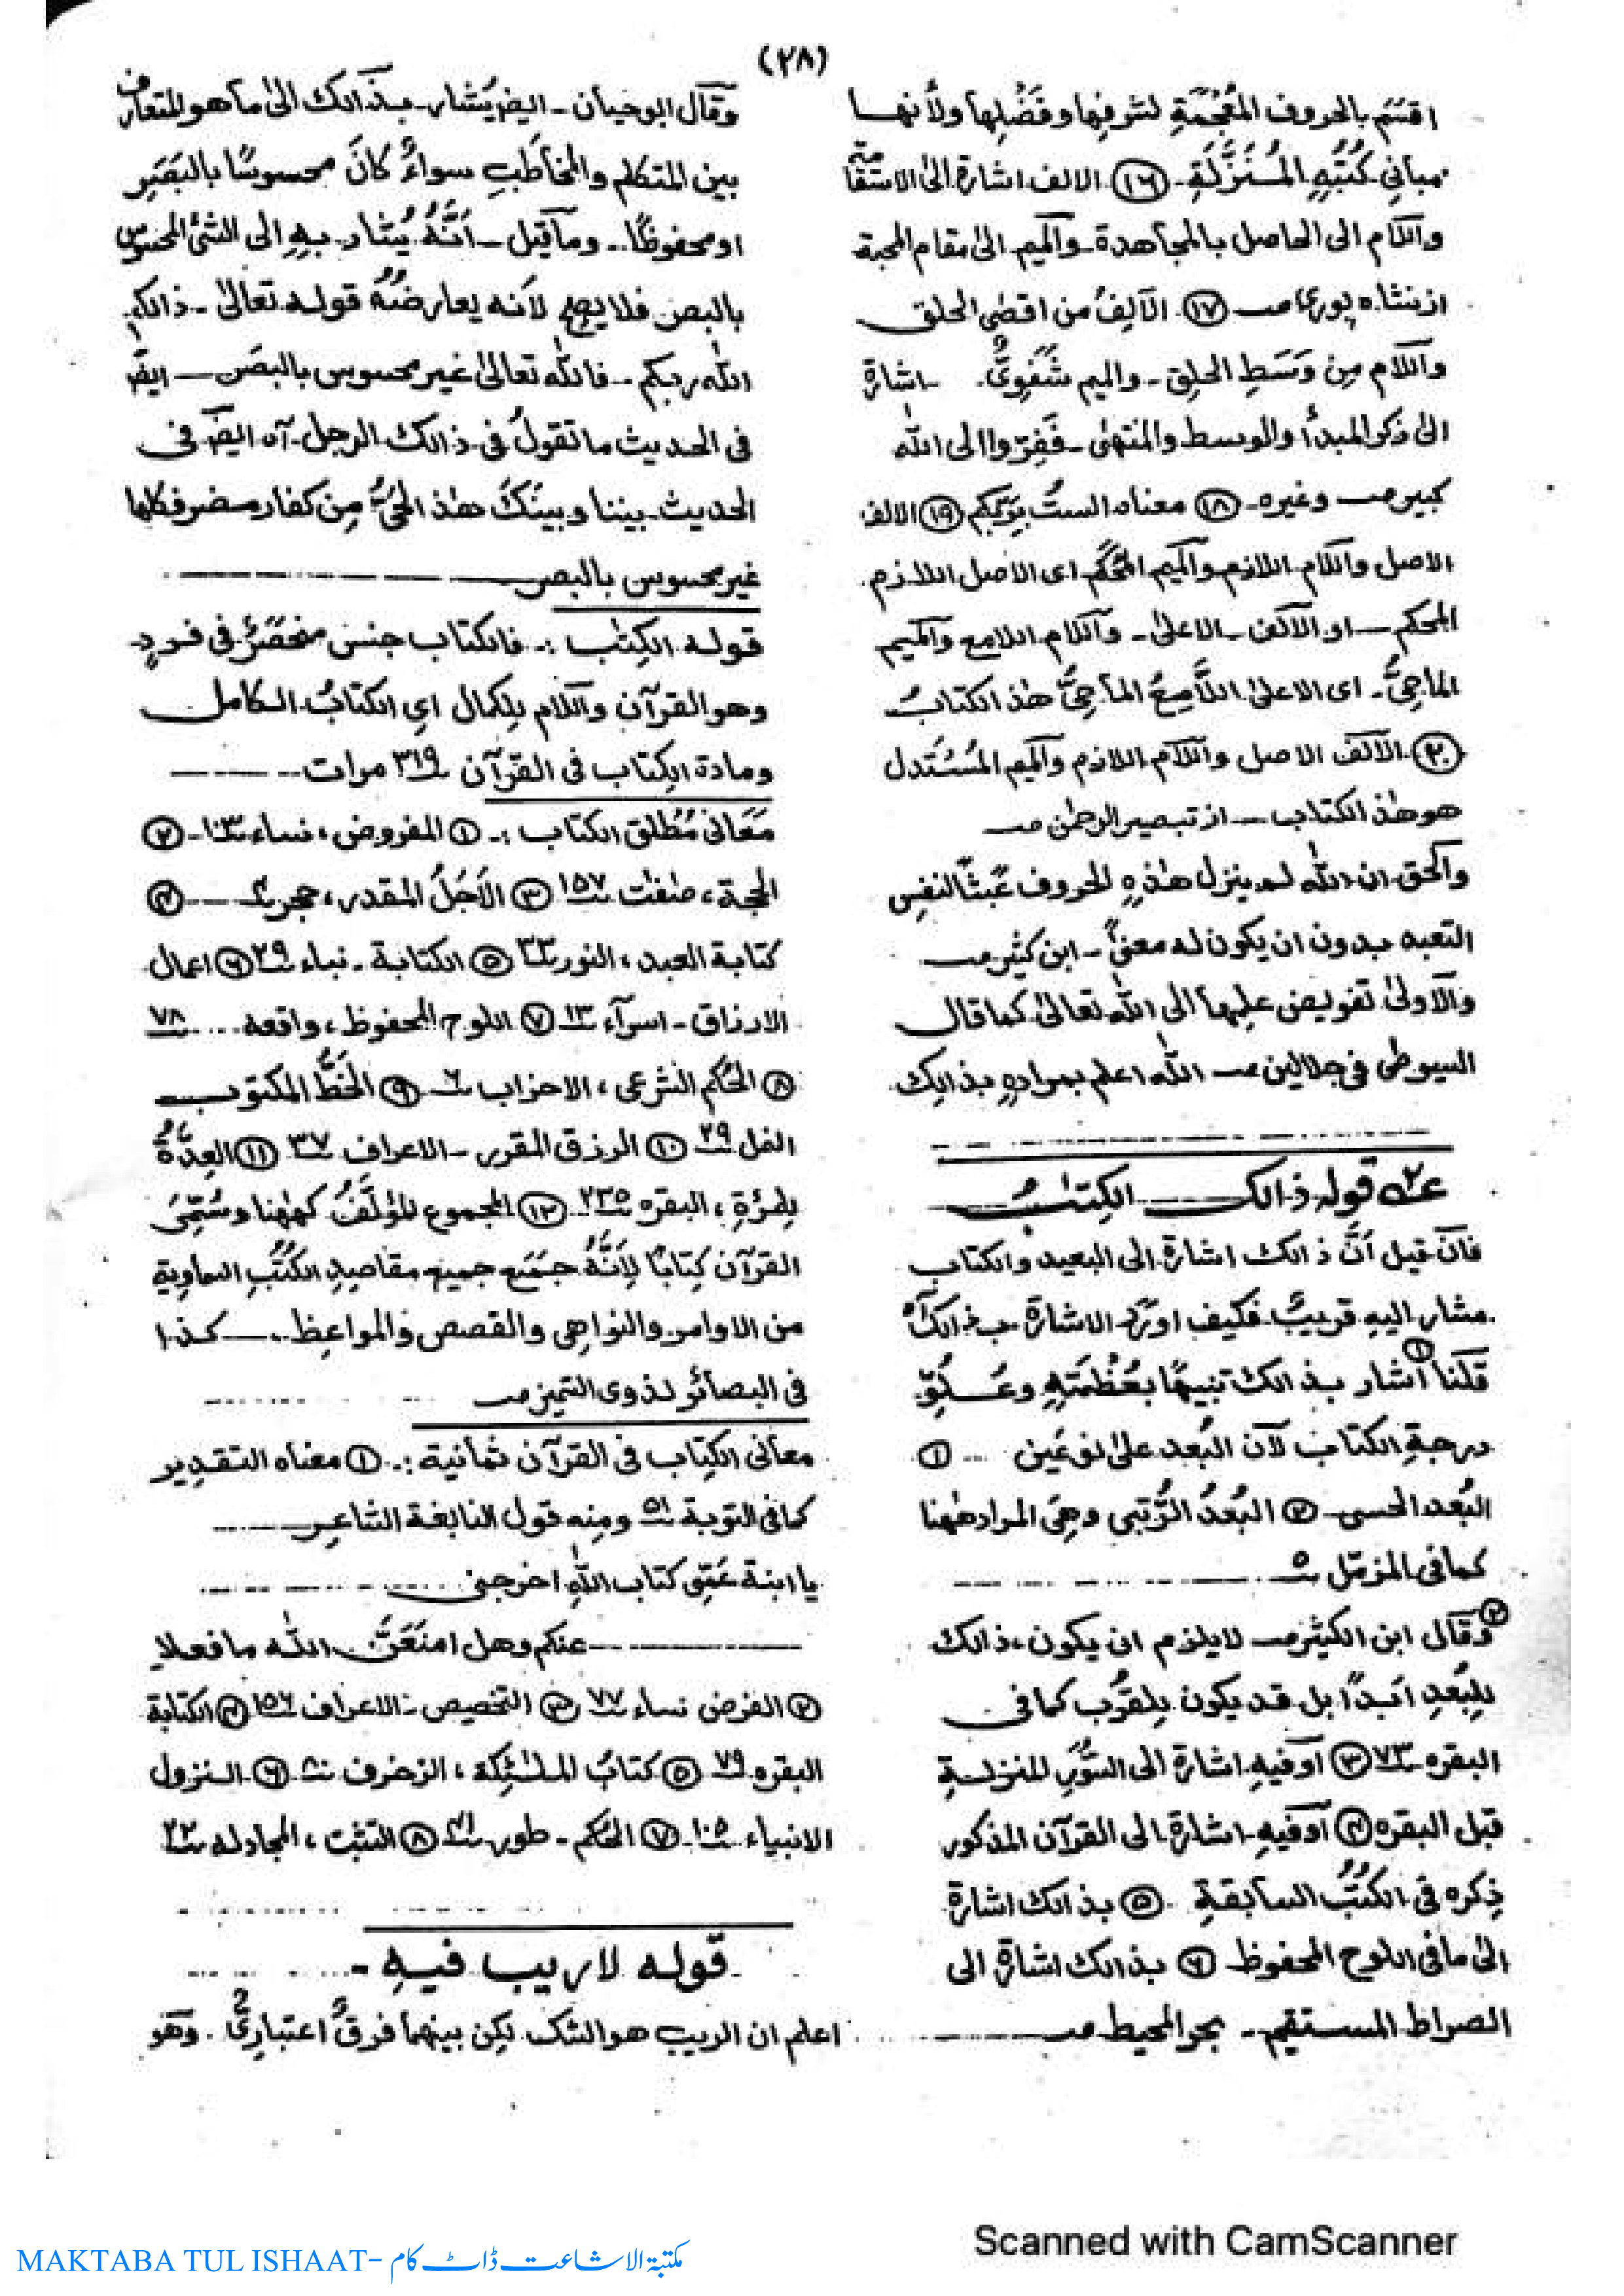 (٢٨)
اقسَمَ بالحروف المُعْجَمَةِ لشرفِها وفَضْلِها ولأنها
مبانِی کُتُبِهِ المُنَزَّلَةِ۔ ⑯ الالف اشارة الیٰ الاستقامة
واللام الی الحاصل بالمجاهدة۔ والمیم الیٰ مقام المحبة
از نیشاہ پوریؒ ⑰ الالِفُ من اقصٰی الحلق
واللام مِن وَسَطِ الحلِق۔ والمیم شَفَوِیٌّ۔ اشارة
الیٰ ذکر المبدأ والوسط والمنتهیٰ۔ فَفِرّوا الی الله
کبیرؒ وغیرہ۔ ⑱ معناه الستُ بربّکم ⑲ الالف
الاصل واللام اللازم والمیم المُحکَم ای الاصل اللازم
المحکم — او الالف۔ الاعلیٰ۔ واللام اللامع والمیم
الماحِیُّ۔ ای الاعلیٰ اللَّامِعُ الماحِیُّ هٰذ الکتابُ
⑳ الالف الاصل واللام اللازم والمیم المُسْتَدل
هو هٰذ الکتاب — از تبصیر الرحمٰنؒ
والحق ان الله لم ینزل هٰذِهِ الحروف عَبَثًا لنفسِ
التعبد بدون ان یکون له معنیً۔ ابن کثیرؒ
والاولیٰ تفویض علمِها الی الله تعالیٰ کما قال
السیوطی فی جلالینؒ الله اعلم بمرادِهِ بذالِک
قوله ذالک الکِتٰبُ
فان قیل اَنَّ ذالک اشارة الی البعید والکتاب
مشار الیهِ قریبٌ فکیف اورَدَ الاشارة بذالک
① قلنا اشار بذالک تنبیهًا بعُظْمَتِهِ وعُلُوِّ
درجةِ الکتاب لان البُعد علیٰ نوعَین ①
البُعد الحسی۔ ② البُعدُ الرُّتبی وهِیَ المراد هٰهنا
کما فی المزمّل ٥
② وقال ابن الکثیرؒ لا یلزم ان یکون ذالک
للبُعدِ ابَدًا بل قد یکون للقُرُب کما فی
البقره ٧٣ ③ اَو فیهِ اشارة الی السُّوَرِ المنزلةِ
قبل البقره ④ اَو فیهِ اشارة الی القرآن المذکور
ذِکره فی الکُتُبِ السابقةِ ⑤ بذالک اشارة
الیٰ ما فی اللوح المحفوظ ⑥ بذالک اشارة الی
الصراط المستقیم۔ بحر المحیطؒ
وقال ابو حیان۔ ایضً یُشار۔ بذالک الیٰ ما هو المتعارف
بین المتکلم والمخاطَبِ سواءٌ کانَ محسوسًا بالبَصَرِ
او محفوظًا۔ وما قیل۔ اَنَّهُ یُشار بِهِ الی الشئ المحسوس
بالبصر فلا یصِح لانه یعارضُهُ قوله تعالیٰ۔ ذالکم
الله ربکم۔ فالله تعالیٰ غیر محسوس بالبصَر — ایضً
فی الحدیث ما تقولُ فی ذالک الرجل۔ آه ایضً فی
الحدیث۔ بیننا وبینَکَ هٰذ الحَیُّ مِن کفار مضر فکلها
غیر محسوس بالبصر
قوله الکِتٰب :۔ فالکتاب جنس منحصَرٌ فی فردٍ
وهو القرآن واللام للکمال ای الکتابُ الکامل
ومادة الکِتاب فی القرآن ٣١٩ مرات
مَعَانی مُطلق الکتاب :۔ ① المفروض، نساء ١٠٣ ②
الحجة، صٰفٰت ١٥٧ ③ الاَجَلُ المقدر، حجر ٤ ④
کتابة العبد، النور ٣٣ ⑤ الکتابة۔ نباء ٢٩ ⑥ اعمال
الارزاق۔ اسرآء ١٣ ⑦ اللوح المحفوظ، واقعه ٧٨
⑧ الحُکم الشرعی، الاحزاب ٦ ⑨ الخَطُّ المکتوب
النمل ٢٩ ⑩ الرزق المقرر۔ الاعراف ٣٧ ⑪ العِدَّةُ
للمرْءةِ، البقره ٢٣٥ ⑫ المجموع المؤلَّفُ کهٰهنا وسُمِّیَ
القرآن کِتابًا لِاَنَّهُ جَمَع جمیع مقاصِدِ الکُتُبِ السماوِیةِ
من الاوامر والنواهِی والقصص والمواعِظ۔ کذا
فی البصائر لذوی التمیزؒ
معانی الکِتاب فی القرآن ثمانیة :۔ ① معناه التقدِیر
کما فی التوبة ٥١ ومِنه قول النابغة الشاعِر
یا ابنة عَمِّی کتاب اللهِ اخرجنی
عنکم وهل امنَعَنَّ الله ما فعلا
② الفرض نساء ٧٧ ③ التخصیص۔ الاعراف ١٥٦ ④ الکتابة
البقره ٧٩ ⑤ کتابُ الملٰئِکة، الزخرف ٨٠ ⑥ النزول
الانبیاء ١٠٥ ⑦ الحُکم۔ طور ٤١ ⑧ التثبت، المجادله ٢٢
قوله لا ریب فیهِ۔
اعلم ان الریب هو الشک لٰکِن بینهما فرقٌ اعتبارِیٌّ۔ وهو
Scanned with CamScanner
MAKTABA TUL ISHAAT- مکتبۃ الاشاعت ڈاٹ کام